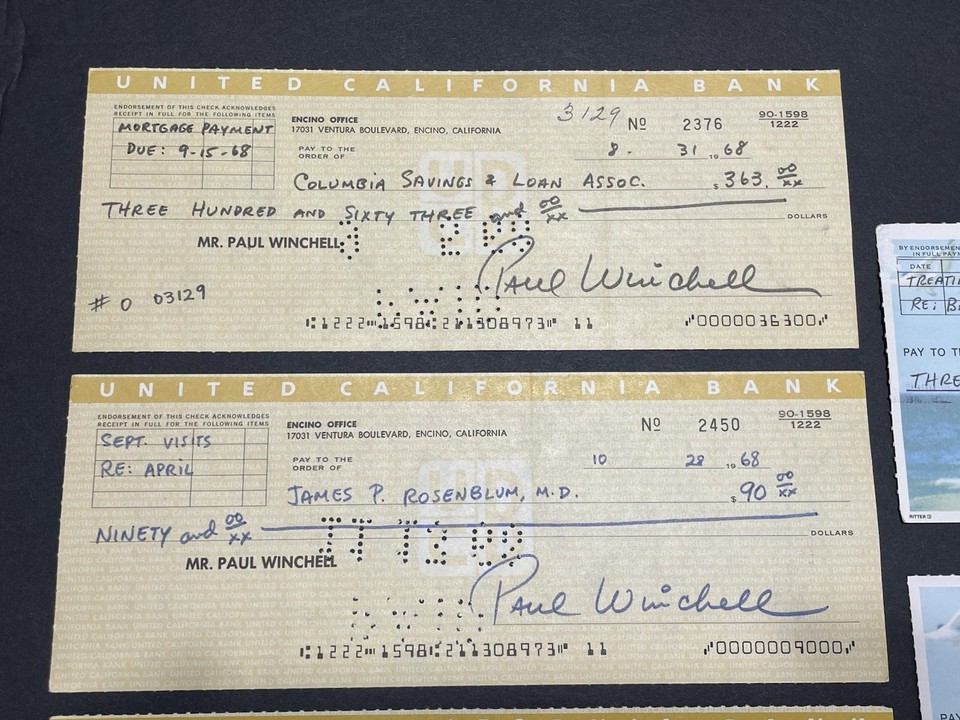 UNITED CALIFORNIA BANK
ENDORSEMENT OF THIS CHECK ACKNOWLEDGES
RECEIPT IN FULL FOR THE FOLLOWING ITEMS
MORTGAGE PAYMENT
DUE: 9-15-68
ENCINO OFFICE
17031 VENTURA BOULEVARD, ENCINO, CALIFORNIA
3129
Nº 2376
90-1598
1222
PAY TO THE
ORDER OF
8 - 31 1968
COLUMBIA SAVINGS & LOAN ASSOC. $363. 00/xx
THREE HUNDRED AND SIXTY THREE and 00/xx DOLLARS
MR. PAUL WINCHELL
Paul Winchell
# 0 03129
⑆1222⑉1598⑆211308973⑈ 11 ⑈0000036300⑈
UNITED CALIFORNIA BANK
ENDORSEMENT OF THIS CHECK ACKNOWLEDGES
RECEIPT IN FULL FOR THE FOLLOWING ITEMS
SEPT. VISITS
RE: APRIL
ENCINO OFFICE
17031 VENTURA BOULEVARD, ENCINO, CALIFORNIA
Nº 2450
90-1598
1222
PAY TO THE
ORDER OF
10 28 1968
JAMES P. ROSENBLUM, M.D. $90 00/xx
NINETY and 00/xx DOLLARS
MR. PAUL WINCHELL
Paul Winchell
⑆1222⑉1598⑆211308973⑈ 11 ⑈0000009000⑈
BY ENDORSEMEN
IN FULL PAYM
DATE
TREATI
RE:
PAY TO T
THRE
RITTER
PAY